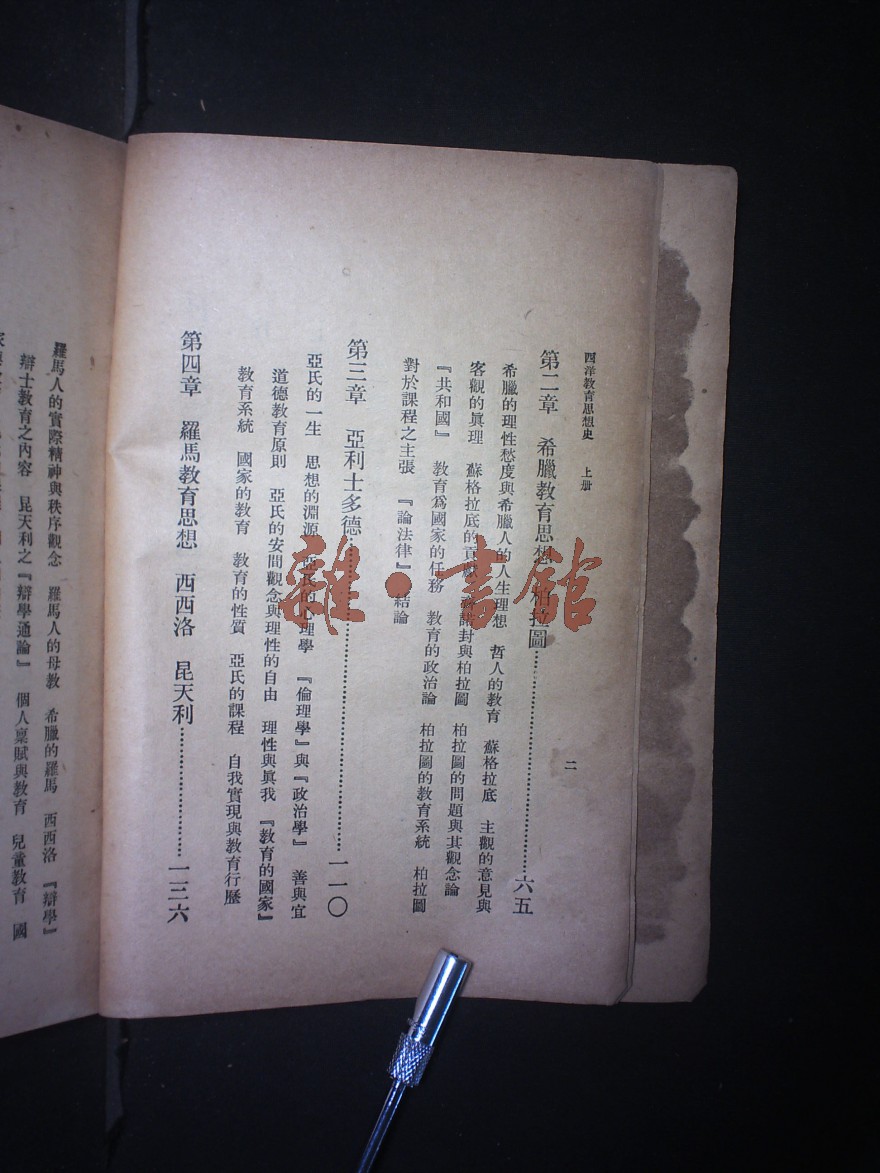 西洋教育思想史 上册
二
第二章 希臘教育思想 柏拉圖……六五
希臘的理性愁度與希臘人的人生理想 哲人的教育 蘇格拉底 主觀的意見與
客觀的眞理 蘇格拉底的貢獻 諾封與柏拉圖 柏拉圖的問題與其觀念論
『共和國』 教育爲國家的任務 教育的政治論 柏拉圖的教育系統 柏拉圖
對於課程之主張 『論法律』 結論
第三章 亞利士多德……一一〇
亞氏的一生 思想的淵源 亞氏的心理學 『倫理學』與『政治學』 善與宜
道德教育原則 亞氏的安閒觀念與理性的自由 理性與眞我 『教育的國家』
教育系統 國家的教育 教育的性質 亞氏的課程 自我實現與教育行歷
第四章 羅馬教育思想 西西洛 昆天利……一三六
羅馬人的實際精神與秩序觀念 羅馬人的母教 希臘的羅馬 西西洛 『辯學』
辯士教育之內容 昆天利之『辯學通論』 個人稟賦與教育 兒童教育 國
雜·書館